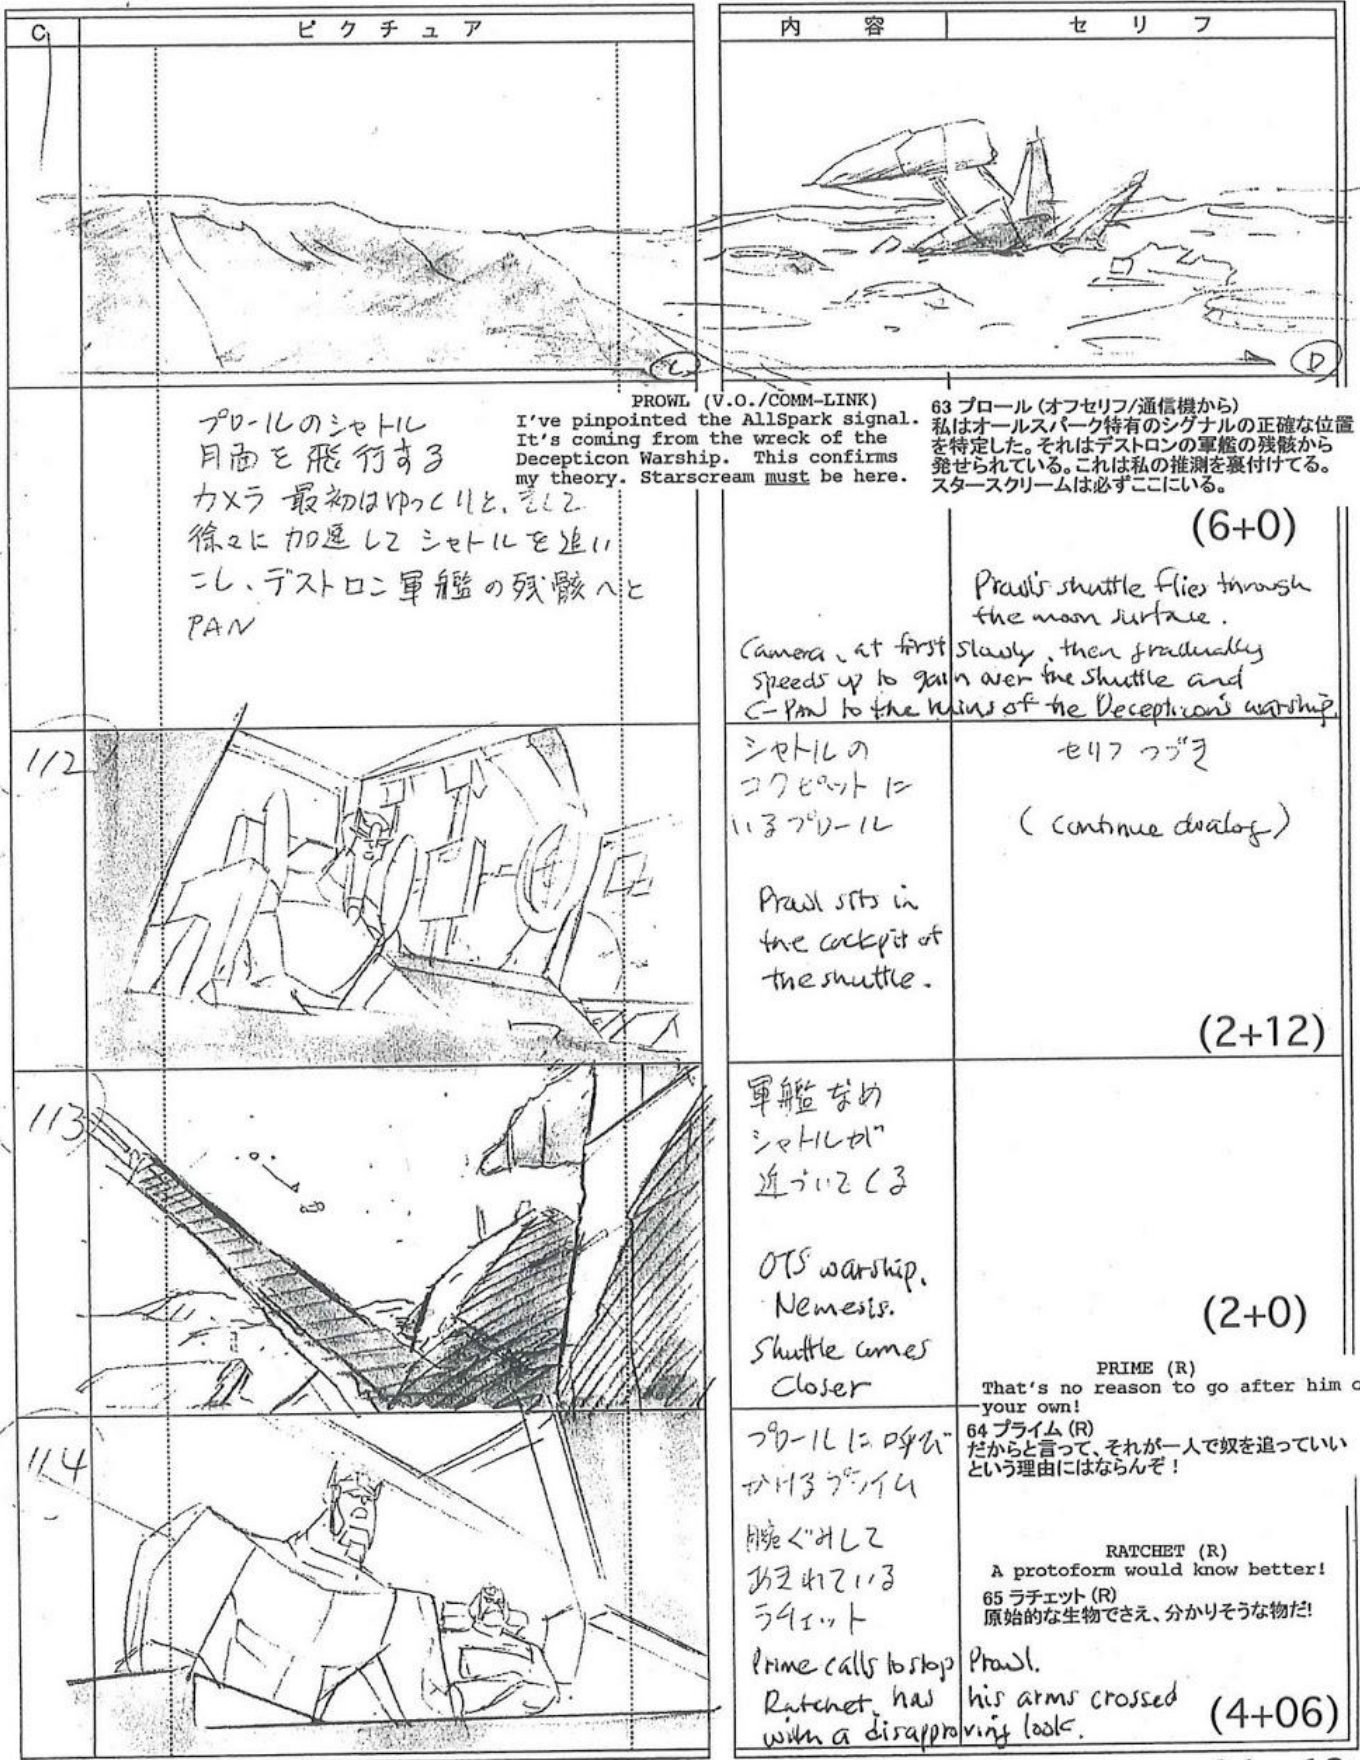 C
ピクチュア
内容
セリフ
C
D
プロールのシャトル
月面を飛行する
カメラ 最初はゆっくりと、そして
徐々に加速してシャトルを追い
こし、デストロン軍艦の残骸へと
PAN
PROWL (V.O./COMM-LINK)
I've pinpointed the AllSpark signal.
It's coming from the wreck of the
Decepticon Warship. This confirms
my theory. Starscream must be here.
63 プロール (オフセリフ/通信機から)
私はオールスパーク特有のシグナルの正確な位置
を特定した。それはデストロンの軍艦の残骸から
発せられている。これは私の推測を裏付けてる。
スタースクリームは必ずここにいる。
(6+0)
Prowl's shuttle flies through
the moon surface.
Camera, at first slowly, then gradually
speeds up to gain over the shuttle and
C-PAN to the ruins of the Decepticon's warship.
112
シャトルの
コクピットに
いるプロール
Prowl sits in
the cockpit of
the shuttle.
セリフつづき
(continue dialog)
(2+12)
113
軍艦なめ
シャトルが
近づいてくる
OTS warship,
Nemesis.
Shuttle comes
Closer
(2+0)
PRIME (R)
That's no reason to go after him o
your own!
64 プライム (R)
だからと言って、それが一人で奴を追っていい
という理由にはならんぞ!
114
プロールに呼び
かけるプライム
腕ぐみして
あきれている
ラチェット
RATCHET (R)
A protoform would know better!
65 ラチェット (R)
原始的な生物でさえ、分かりそうな物だ!
Prime calls to stop Prowl.
Ratchet has his arms crossed
with a disapproving look.
(4+06)